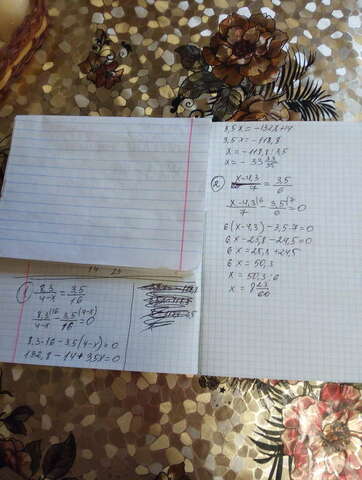 1) 8,3/4-x = 3,5/16
8,3^(16/4-x - 3,5^(4-x)/16 = 0
8,3·16 - 3,5(4-x) = 0
132,8 - 14 + 3,5x = 0
3,5x = -132,8+14
3,5x = -118,8
x = -118,8 : 3,5
x = - 33 33/35
2) x-4,3/7 = 3,5/6
x-4,3^(6/7 - 3,5^(7/6 = 0
6(x-4,3) - 3,5·7 = 0
6x - 25,8 - 24,5 = 0
6x = 25,8 + 24,5
6x = 50,3
x = 50,3 : 6
x = 8 23/60